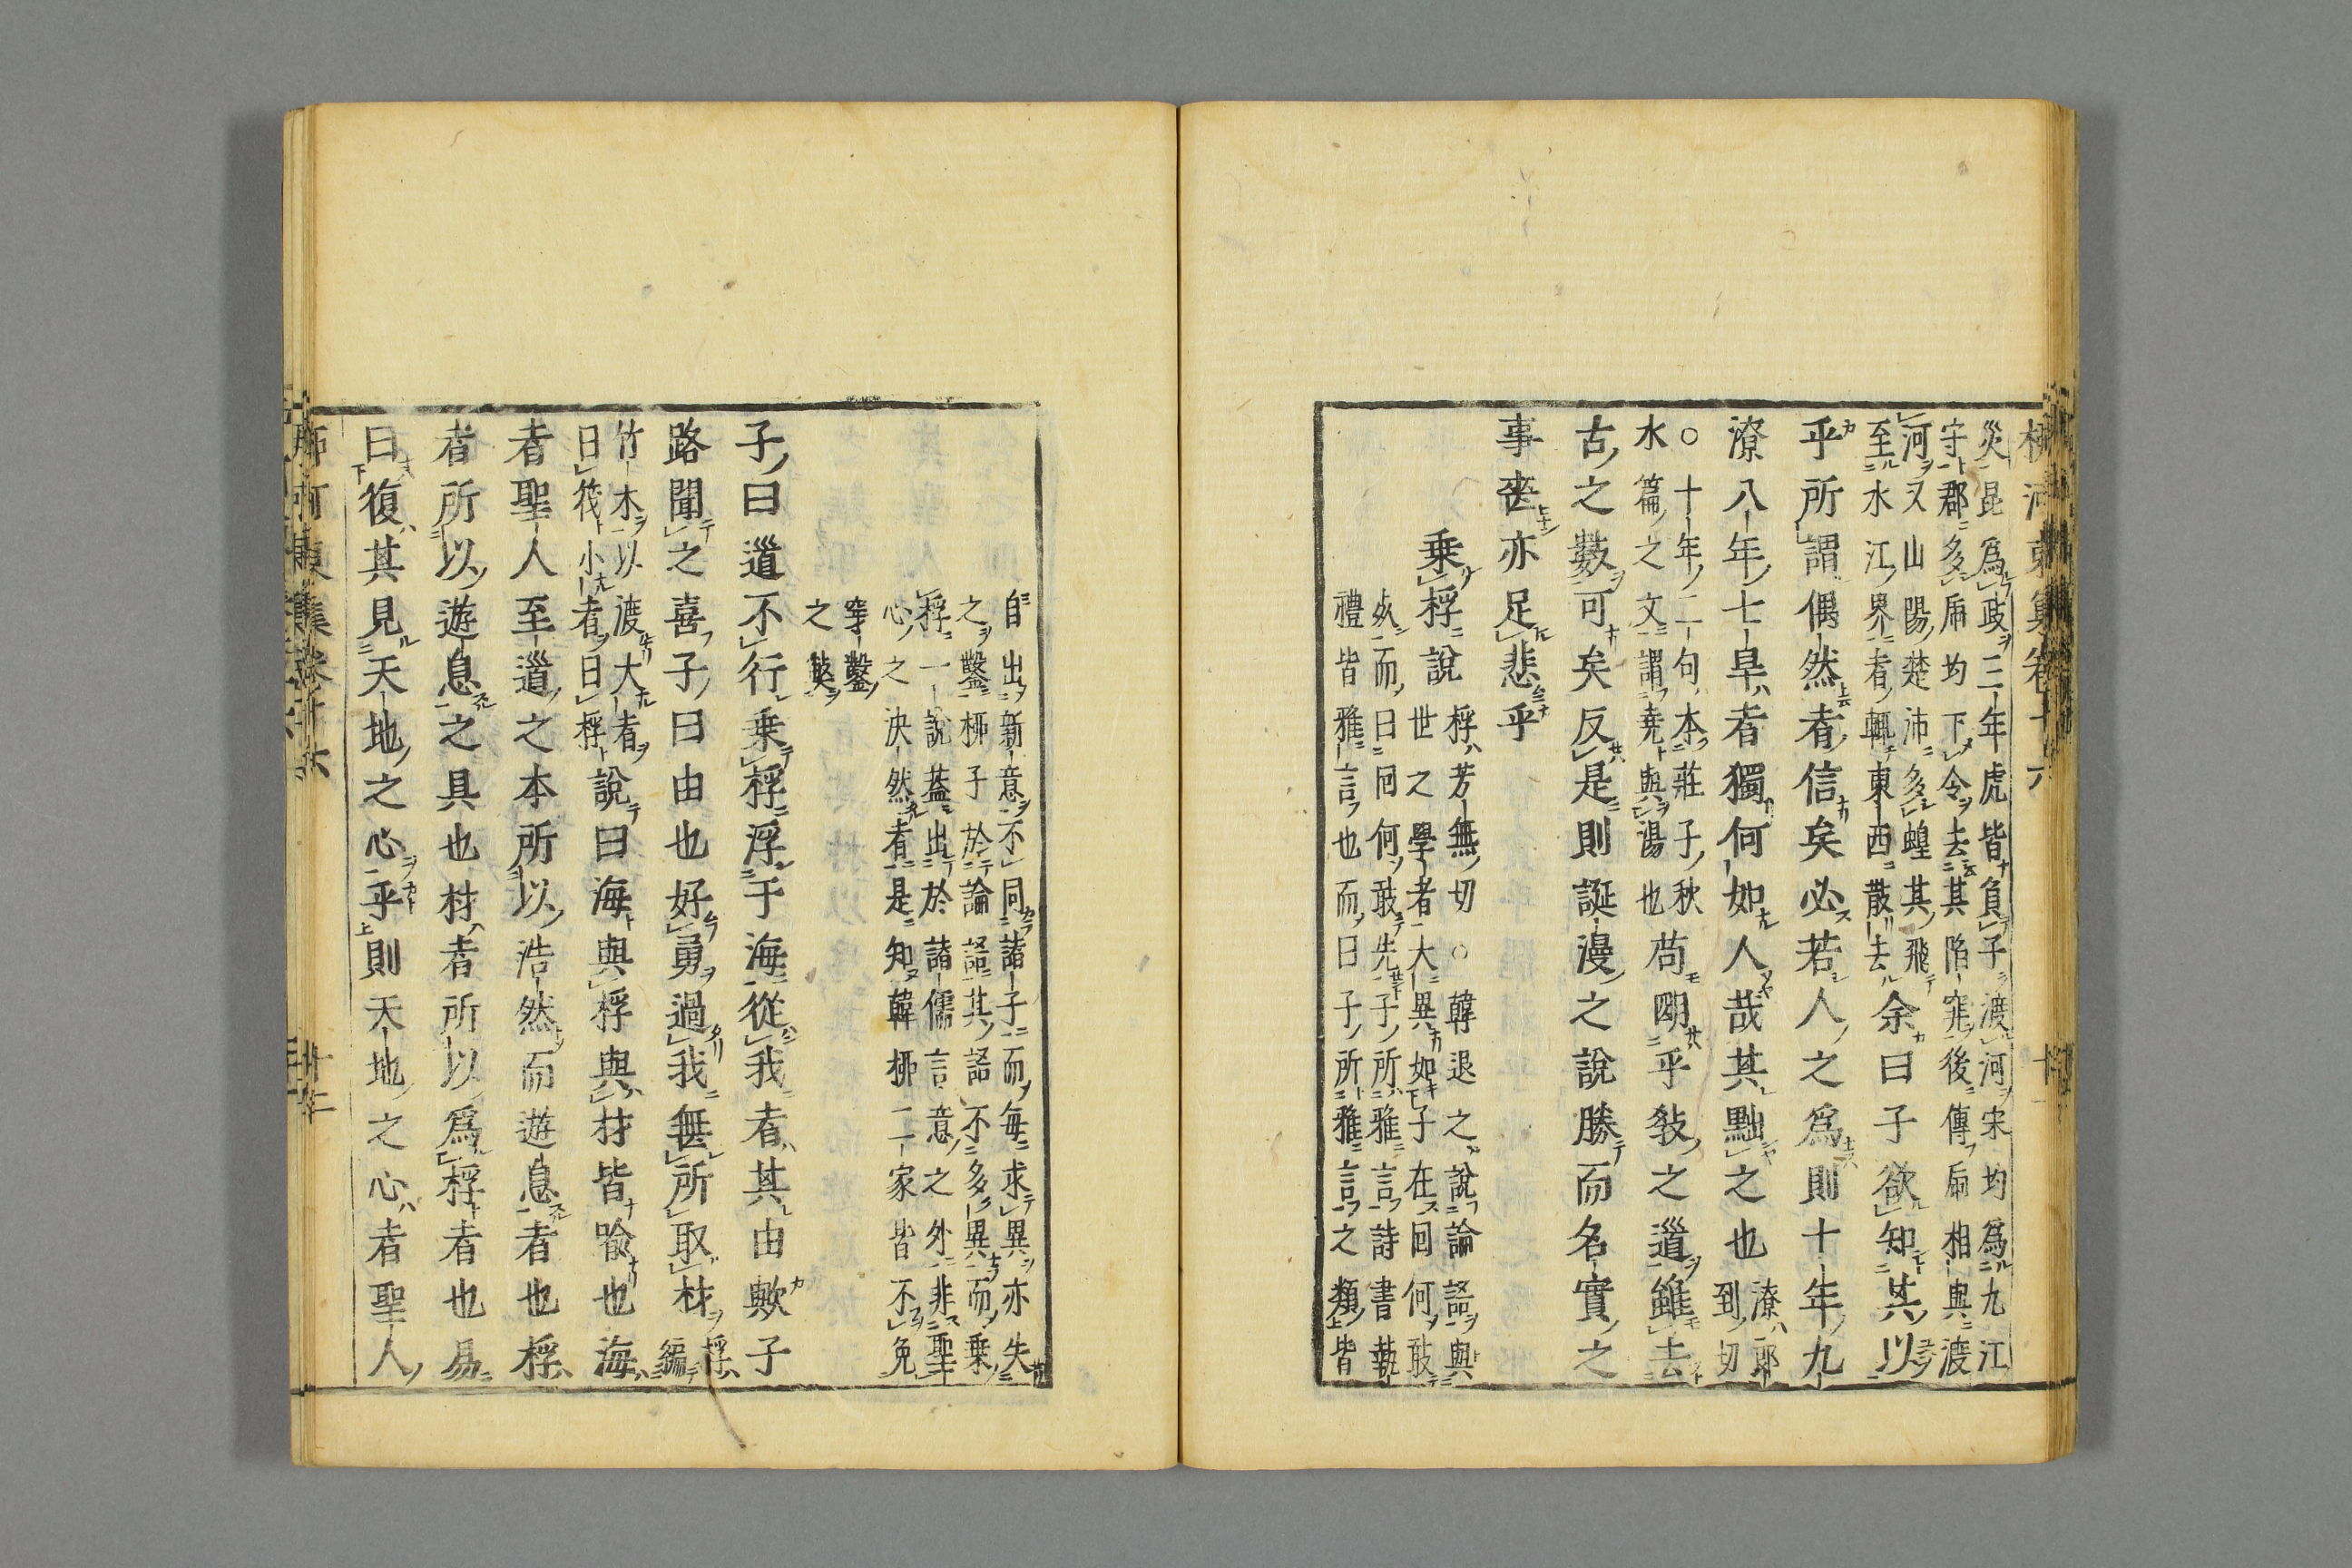 柳河東集卷十六
災昆爲政三年虎皆負子渡河宋均爲九江
守郡多虎均下令去其陷穽後傳虎相與渡
河又山陽楚沛多蝗其飛
至水江界者輒東西散去余曰子欲知其以
乎所謂偶然者信矣必若人之爲則十年九
潦八年七旱者獨何如人哉其黜之也潦郎
到切
○十年二句本莊子秋
水篇之文謂堯與湯也苟明乎敎之道雖去
古之數可矣反是則誕漫之說勝而名實之
事喪亦足悲乎
乗桴說桴芳無切○韓退之說論語與
世之學者大異如子在回何敢
死而曰回何敢先子所雅言詩書執
禮皆雅言也而曰子所雅言之類皆
自出新意不同諸子而毎求異亦失
之鑿柳子於論語其語不多異而乗
桴一說蓋出於諸儒言意之外非聖
心之決然者是知韓柳二家皆不免
穿鑿
之獘
子曰道不行乗桴浮于海從我者其由歟子
路聞之喜子曰由也好勇過我無所取材桴
編
竹木以渡大者
曰筏小者曰桴說曰海與桴與材皆喩也海
者聖人至道之本所以浩然而遊息者也桴
者所以遊息之具也材者所以爲桴者也易
曰復其見天地之心乎則天地之心者聖人